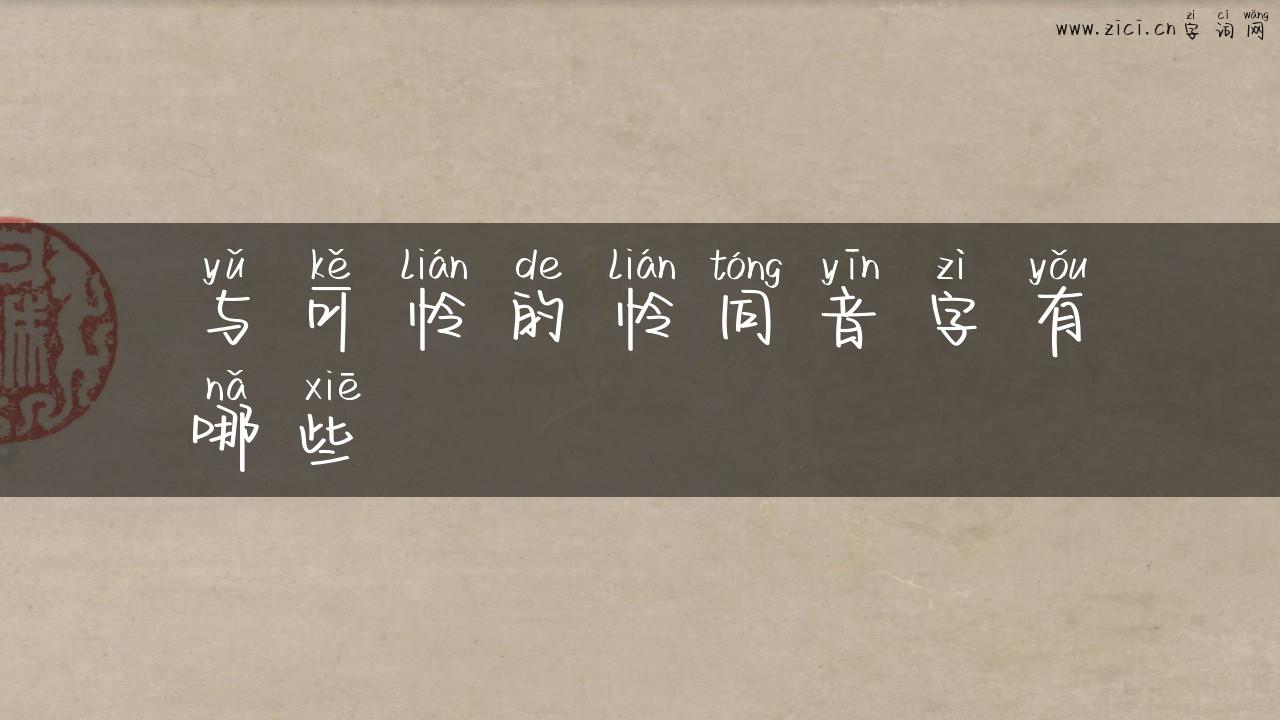 zì cí wǎng
www.zici.cn 字词网
yǔ kě lián de lián tóng yīn zì yǒu
与可怜的怜同音字有
nǎ xiē
哪些